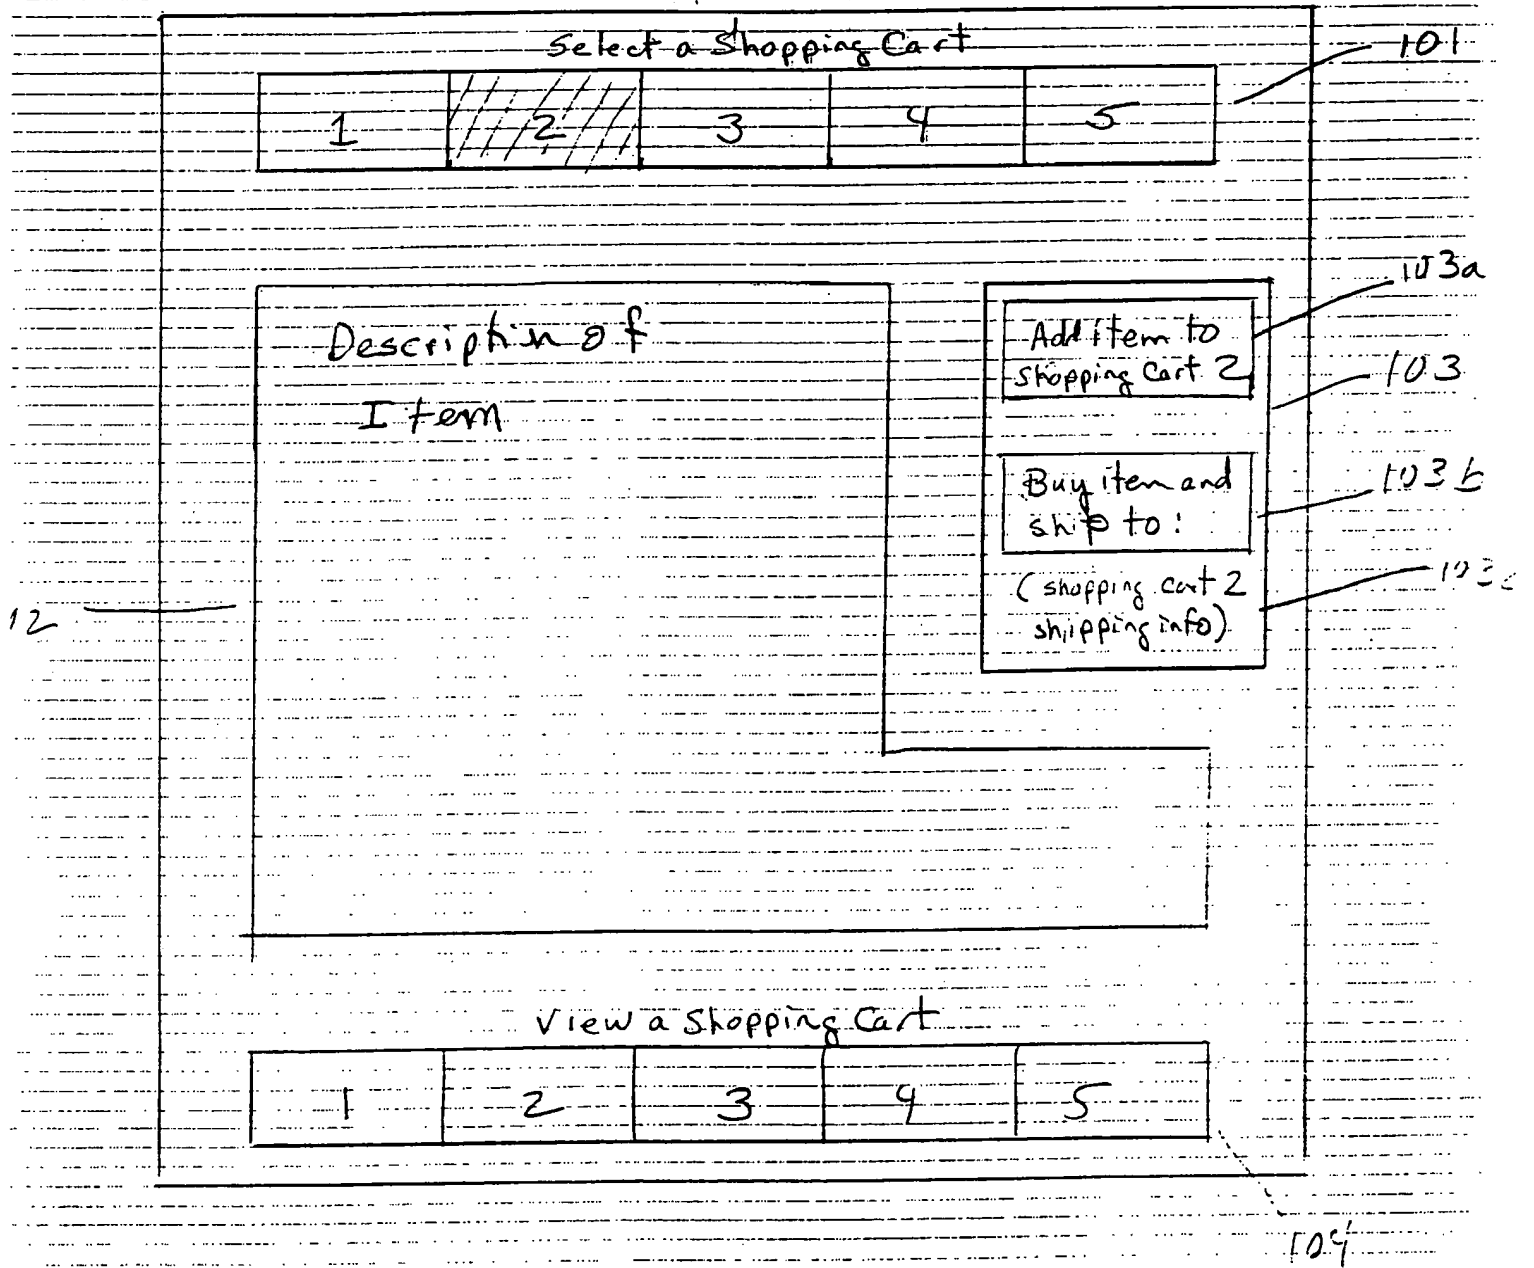 Select a Shopping Cart
101
1 2 3 4 5
103a
Description of
Item
Add item to
shopping Cart 2
103
Buy item and
ship to:
103b
(shopping cart 2
shipping info)
103c
12
View a Shopping Cart
1 2 3 4 5
104